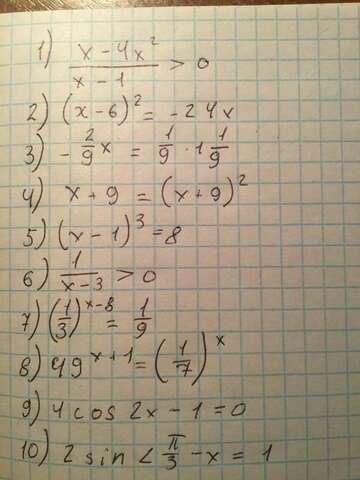 1) (x - 4x²)/(x - 1) > 0
2) (x-6)² = -24x
3) -2/9 x = 1/9 · 1 1/9
4) x + 9 = (x+9)²
5) (x-1)³ = 8
6) 1/(x-3) > 0
7) (1/3)^(x-8) = 1/9
8) 49^(x+1) = (1/7)^x
9) 4 cos 2x - 1 = 0
10) 2 sin < π/3 - x = 1